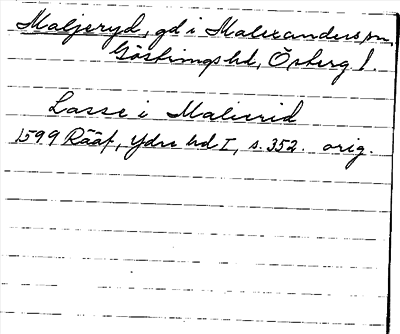 Maljeryd, gd i Malexanders sn,
Göstrings hd, Österg. l.
Lasse i Malierid
1599 Rääf, Ydre hd I, s. 352. orig.